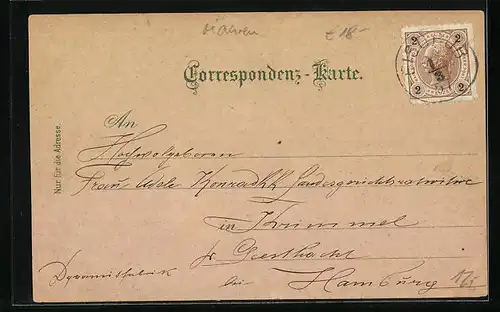 Mähren
£ 18-
Correspondenz-Karte.
2 2
2 2
Nur für die Adresse.
An
Hochwolgeboren
Frau Adele Landesgerichtsratswitwe
in Krümmel
pr Geesthacht
Dynamitfabrik
bei
Hamburg